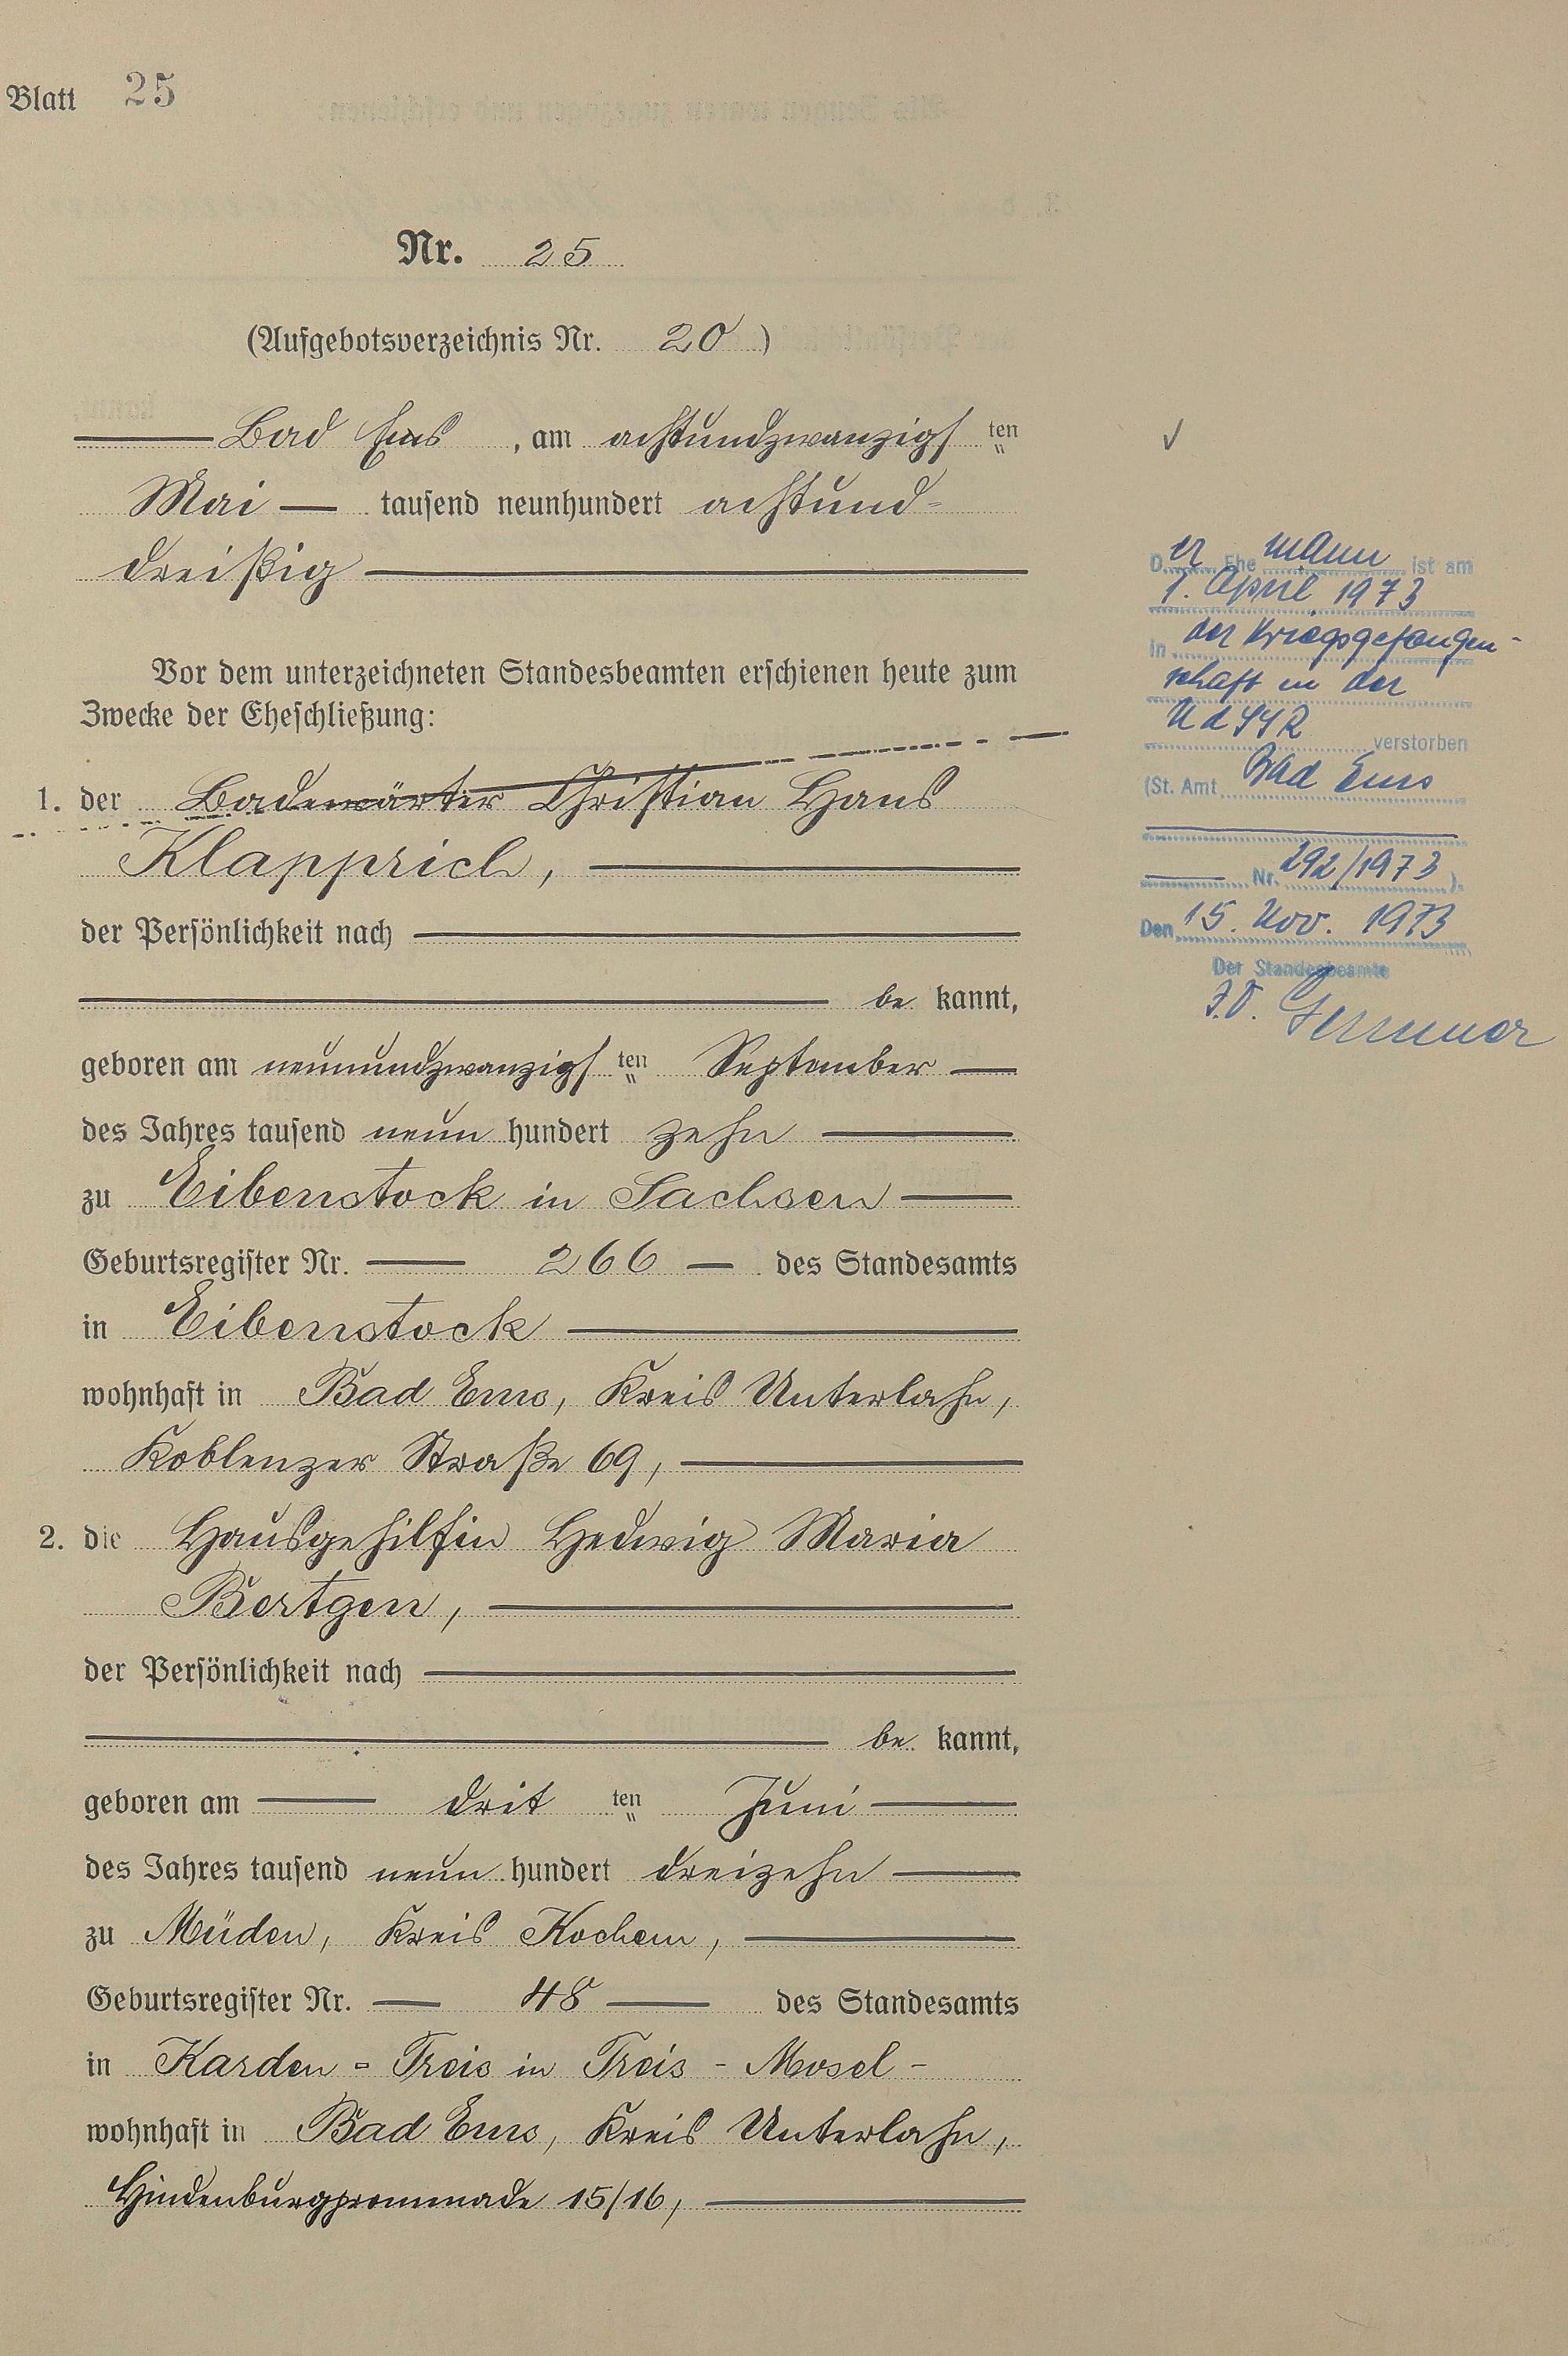 Blatt 25
Nr. 25
(Aufgebotsverzeichnis Nr. 20)
Bad Ems, am achtundzwanzigsten
Mai tausend neunhundert achtund-
dreißig
Vor dem unterzeichneten Standesbeamten erschienen heute zum
Zwecke der Eheschließung:
1. der Badewärter Christian Hans
Klapprich,
der Persönlichkeit nach
be kannt,
geboren am neunundzwanzigsten September
des Jahres tausend neun hundert zehn
zu Eibenstock in Sachsen
Geburtsregister Nr. 266 des Standesamts
in Eibenstock
wohnhaft in Bad Ems, Kreis Unterlahn,
Koblenzer Straße 69,
2. die Hausgehilfin Hedwig Maria
Bertgen,
der Persönlichkeit nach
be kannt,
geboren am dritten Juni
des Jahres tausend neun hundert dreizehn
zu Müden, Kreis Kochem,
Geburtsregister Nr. 48 des Standesamts
in Karden = Treis in Treis - Mosel -
wohnhaft in Bad Ems, Kreis Unterlahn,
Hindenburgpromenade 15/16,
Der Ehemann ist am
1. April 1973
in der Kriegsgefangen-
schaft in der
UdSSR
verstorben
(St. Amt Bad Ems
Nr. 292/1973).
Den 15. Nov. 1973
Der Standesbeamte
I.V.